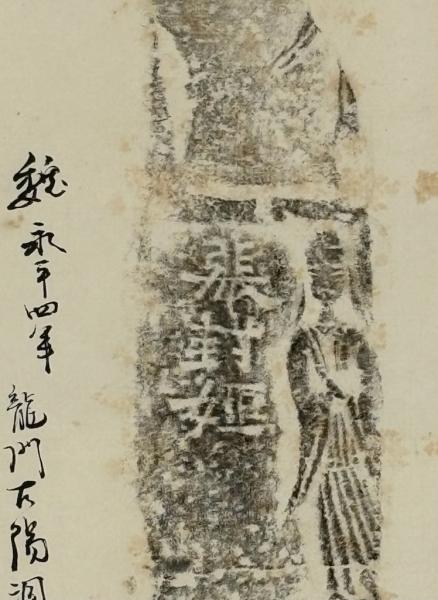 裴對姬
魏永平四年 龍門古陽洞